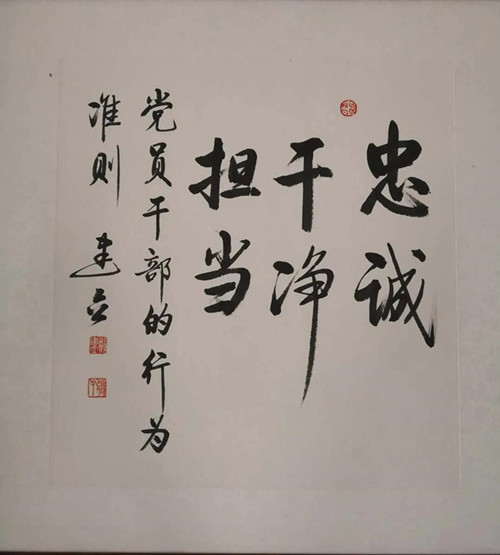 忠诚
干净
担当
党员干部的行为
准则 建立